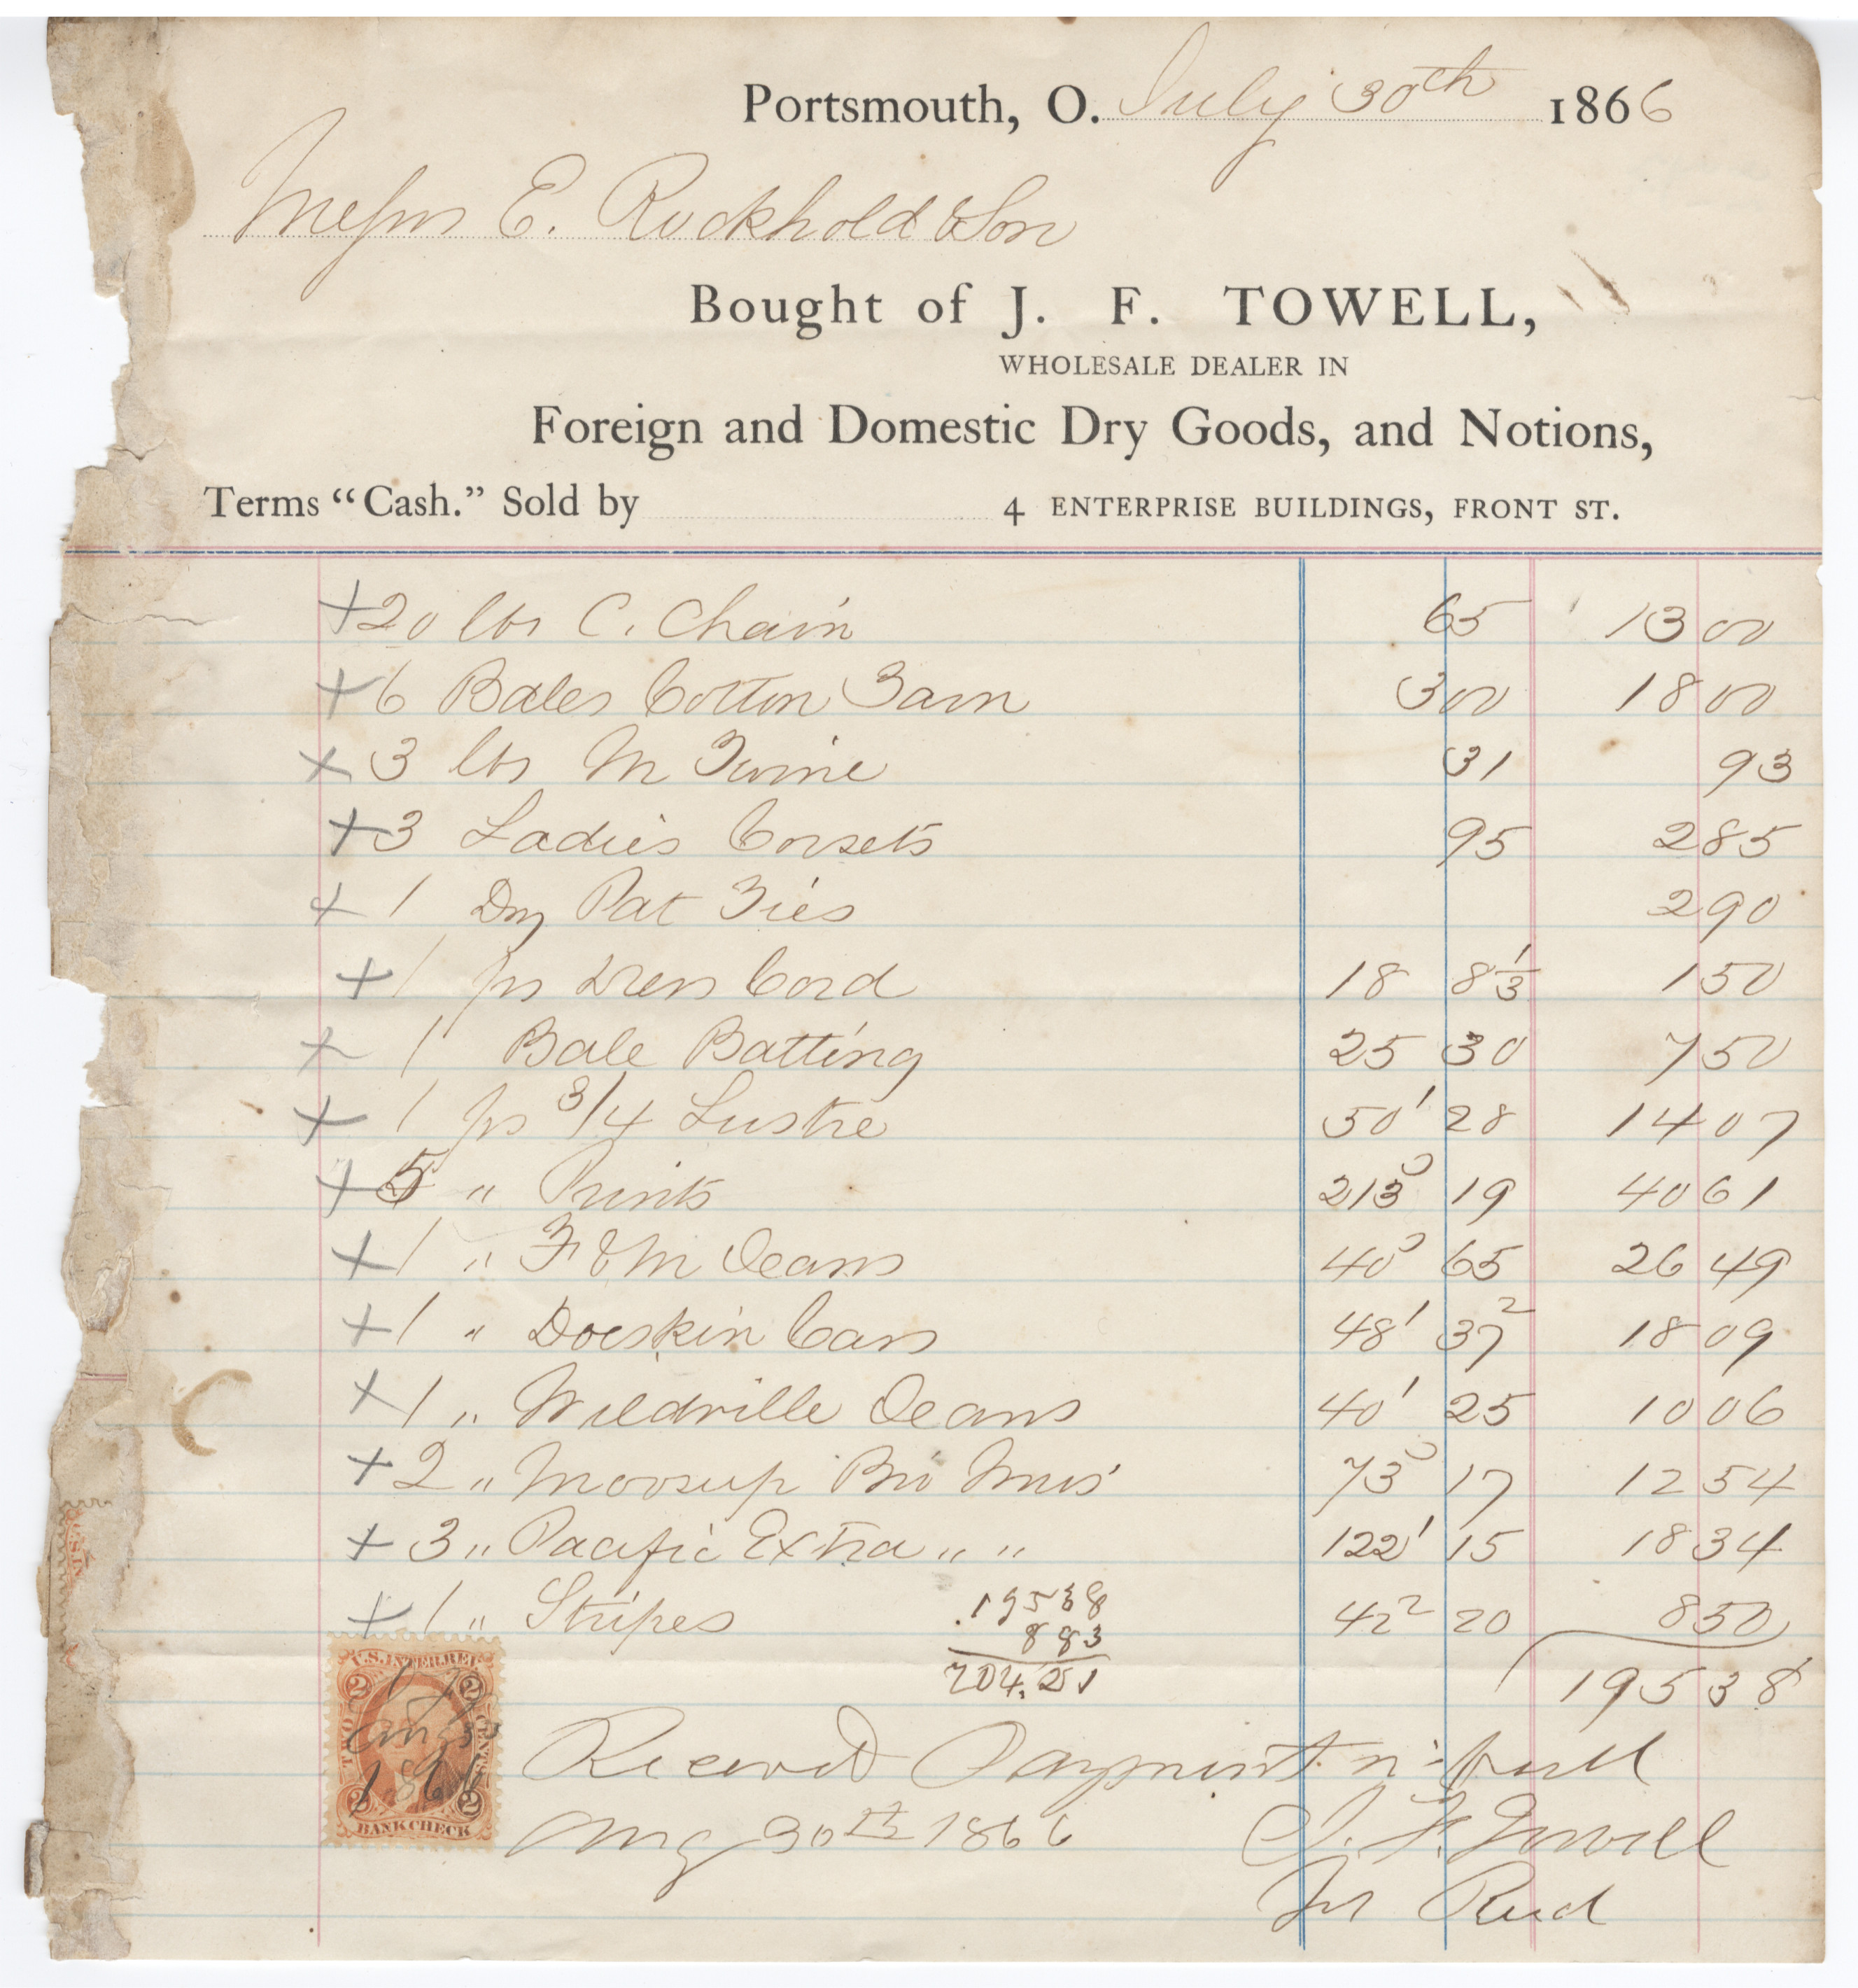 Portsmouth, O. July 30th 1866
Messrs E. Rockhold & Son
Bought of J. F. TOWELL,
WHOLESALE DEALER IN
Foreign and Domestic Dry Goods, and Notions,
Terms "Cash." Sold by 4 ENTERPRISE BUILDINGS, FRONT ST.
+ 20 lbs C. Chain 65 13 00
+ 6 Bales Cotton Yarn 3 00 18 00
+ 3 lbs M Twine 31 93
+ 3 Ladies Corsets 95 2 85
+ 1 Dz Pat Ties 2 90
+ 1 ps Dress Cord 18 8 1/3 1 50
+ 1 Bale Batting 25 30 7 50
+ 1 ps 3/4 Lustre 50 1 28 14 07
+ 5 " Prints 213 3 19 40 61
+ 1 " F & M Jeans 40 3 65 26 49
+ 1 " Doeskin Cass 48 1 37 2 18 09
+ 1 " Jeans 40 1 25 10 06
+ 2 " Moosup Bro Mus 73 3 17 12 54
+ 3 " Pacific Extra " " 122 1 15 18 34
+ 1 " Stripes 42 2 20 8 50
195 38
8 83
204.21
195 38
U.S. INTER. REV.
2 2
TWO CENTS
Aug 30
1866
2 2
BANK CHECK
Received Payment in full
Aug 30th 1866 J. F. Towell